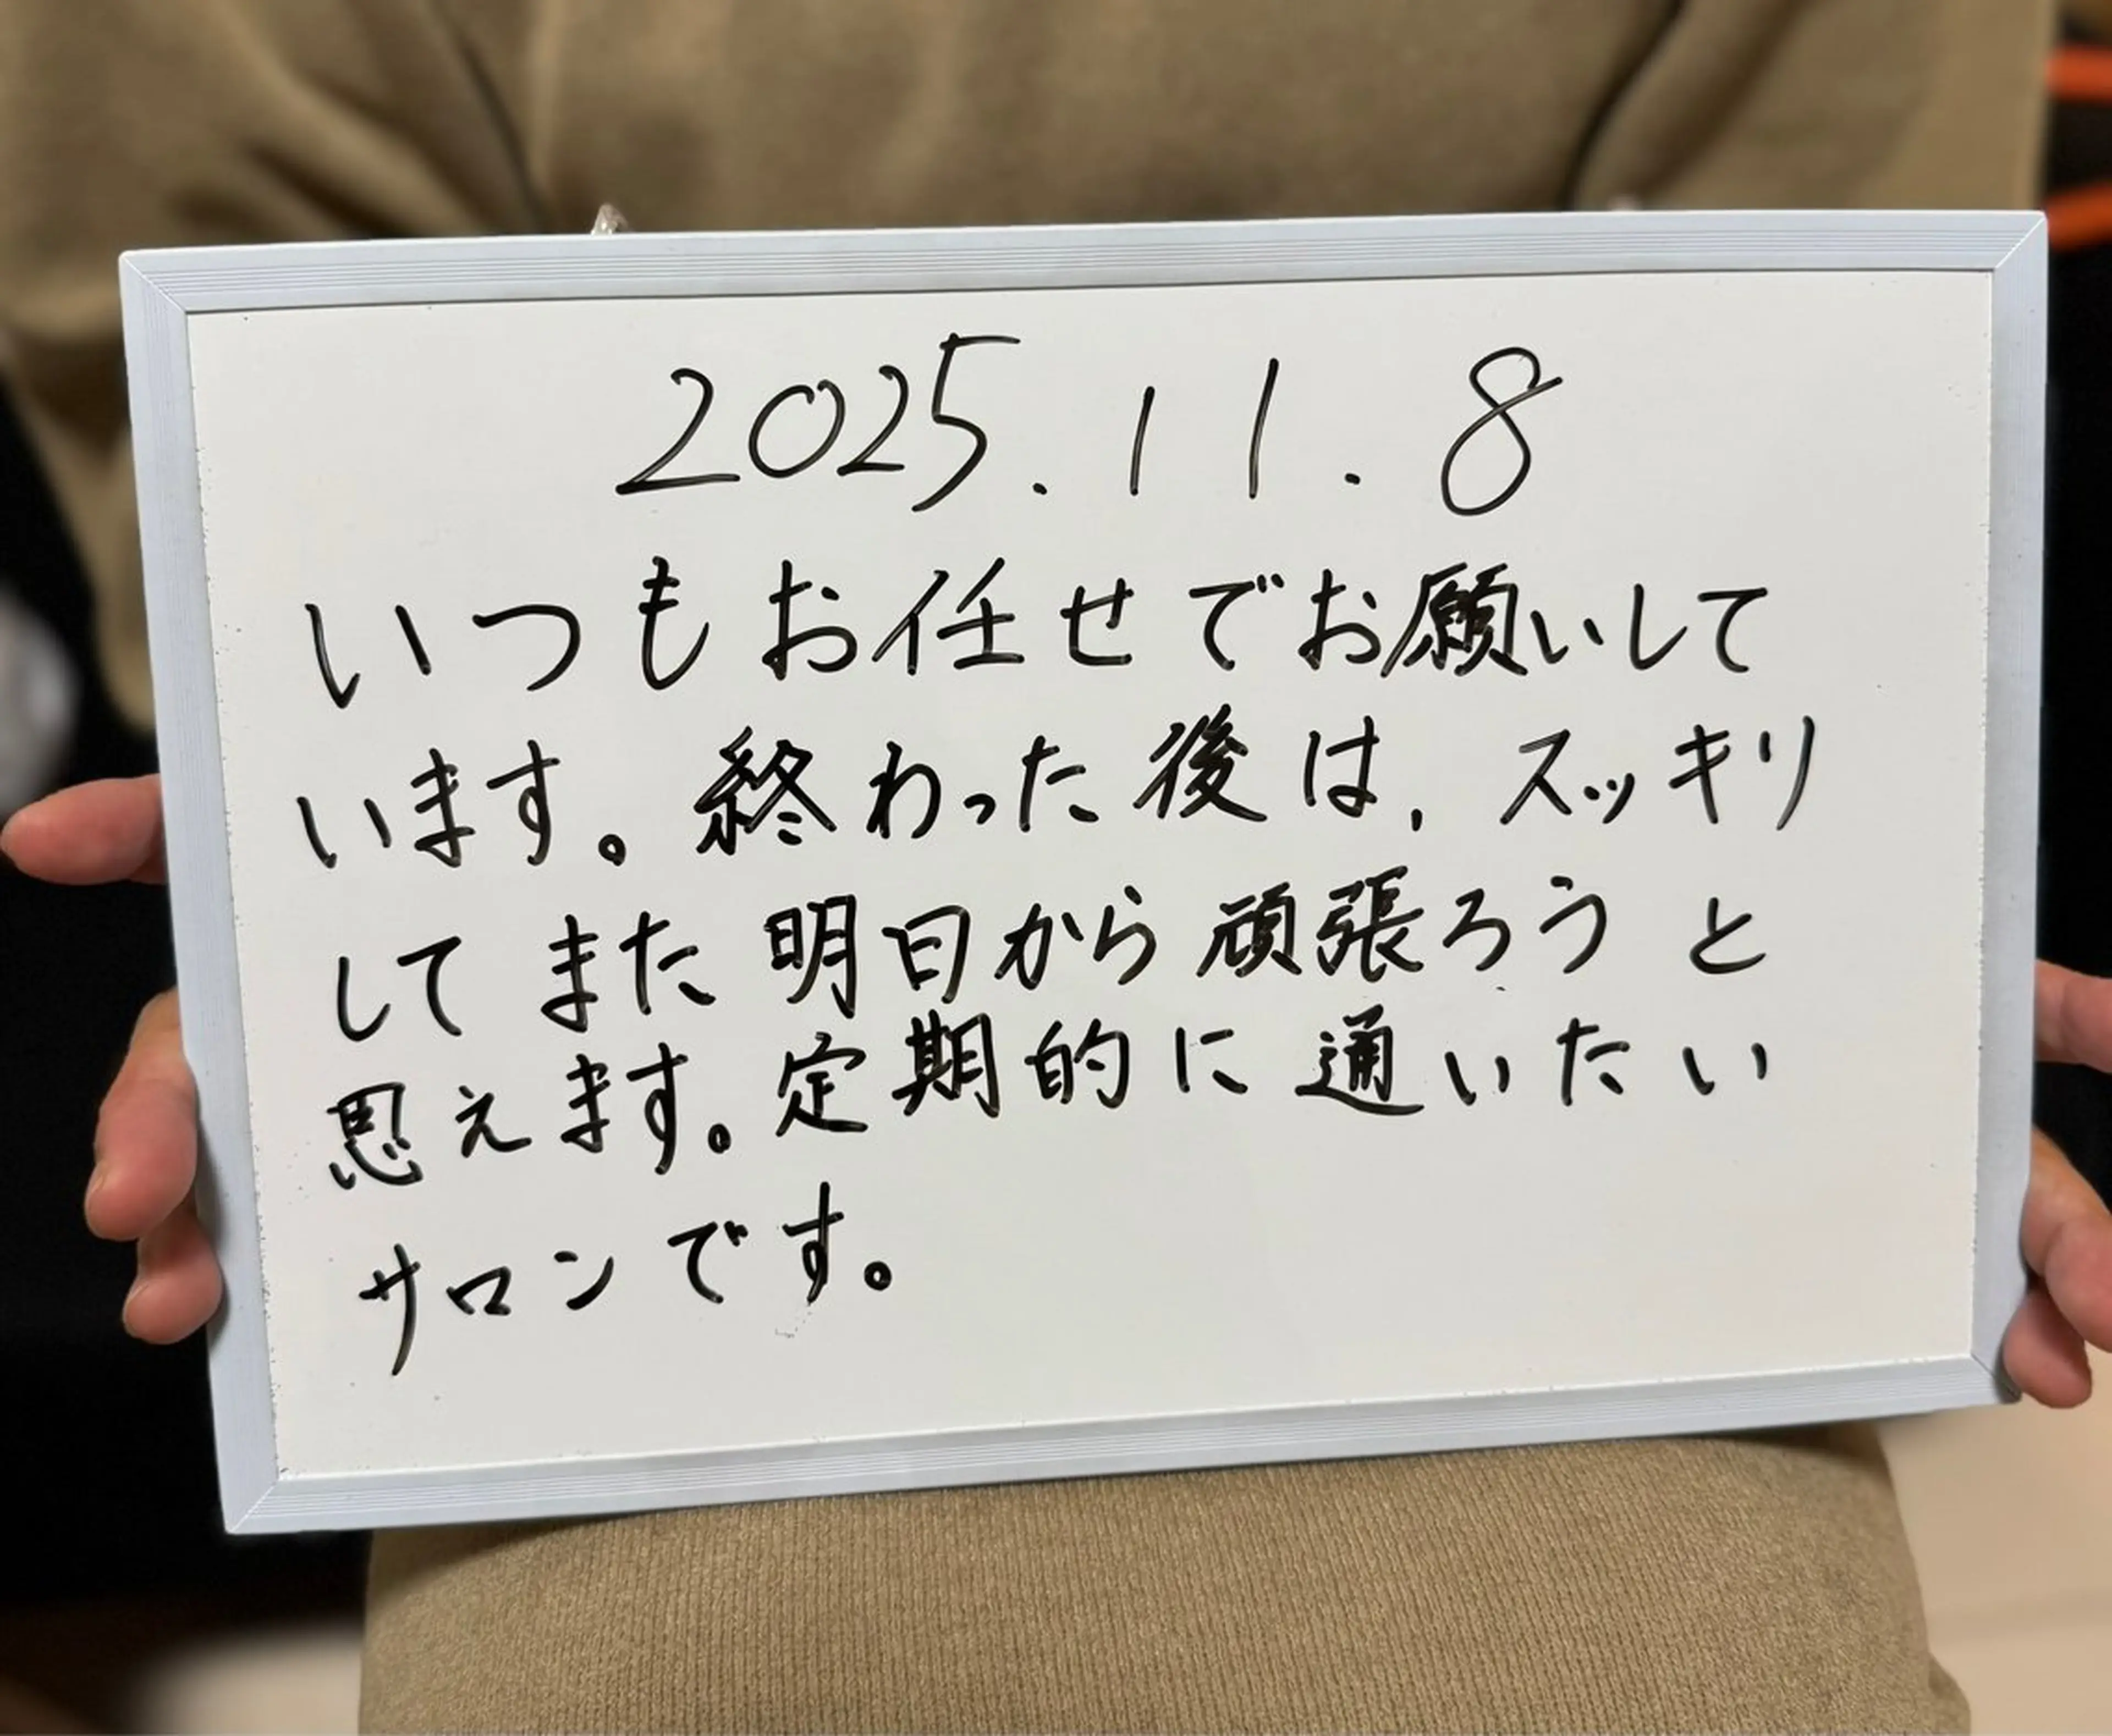 2025.11.8
いつもお任せでお願いして
います。終わった後は、スッキリ
してまた明日から頑張ろうと
思えます。定期的に通いたい
サロンです。